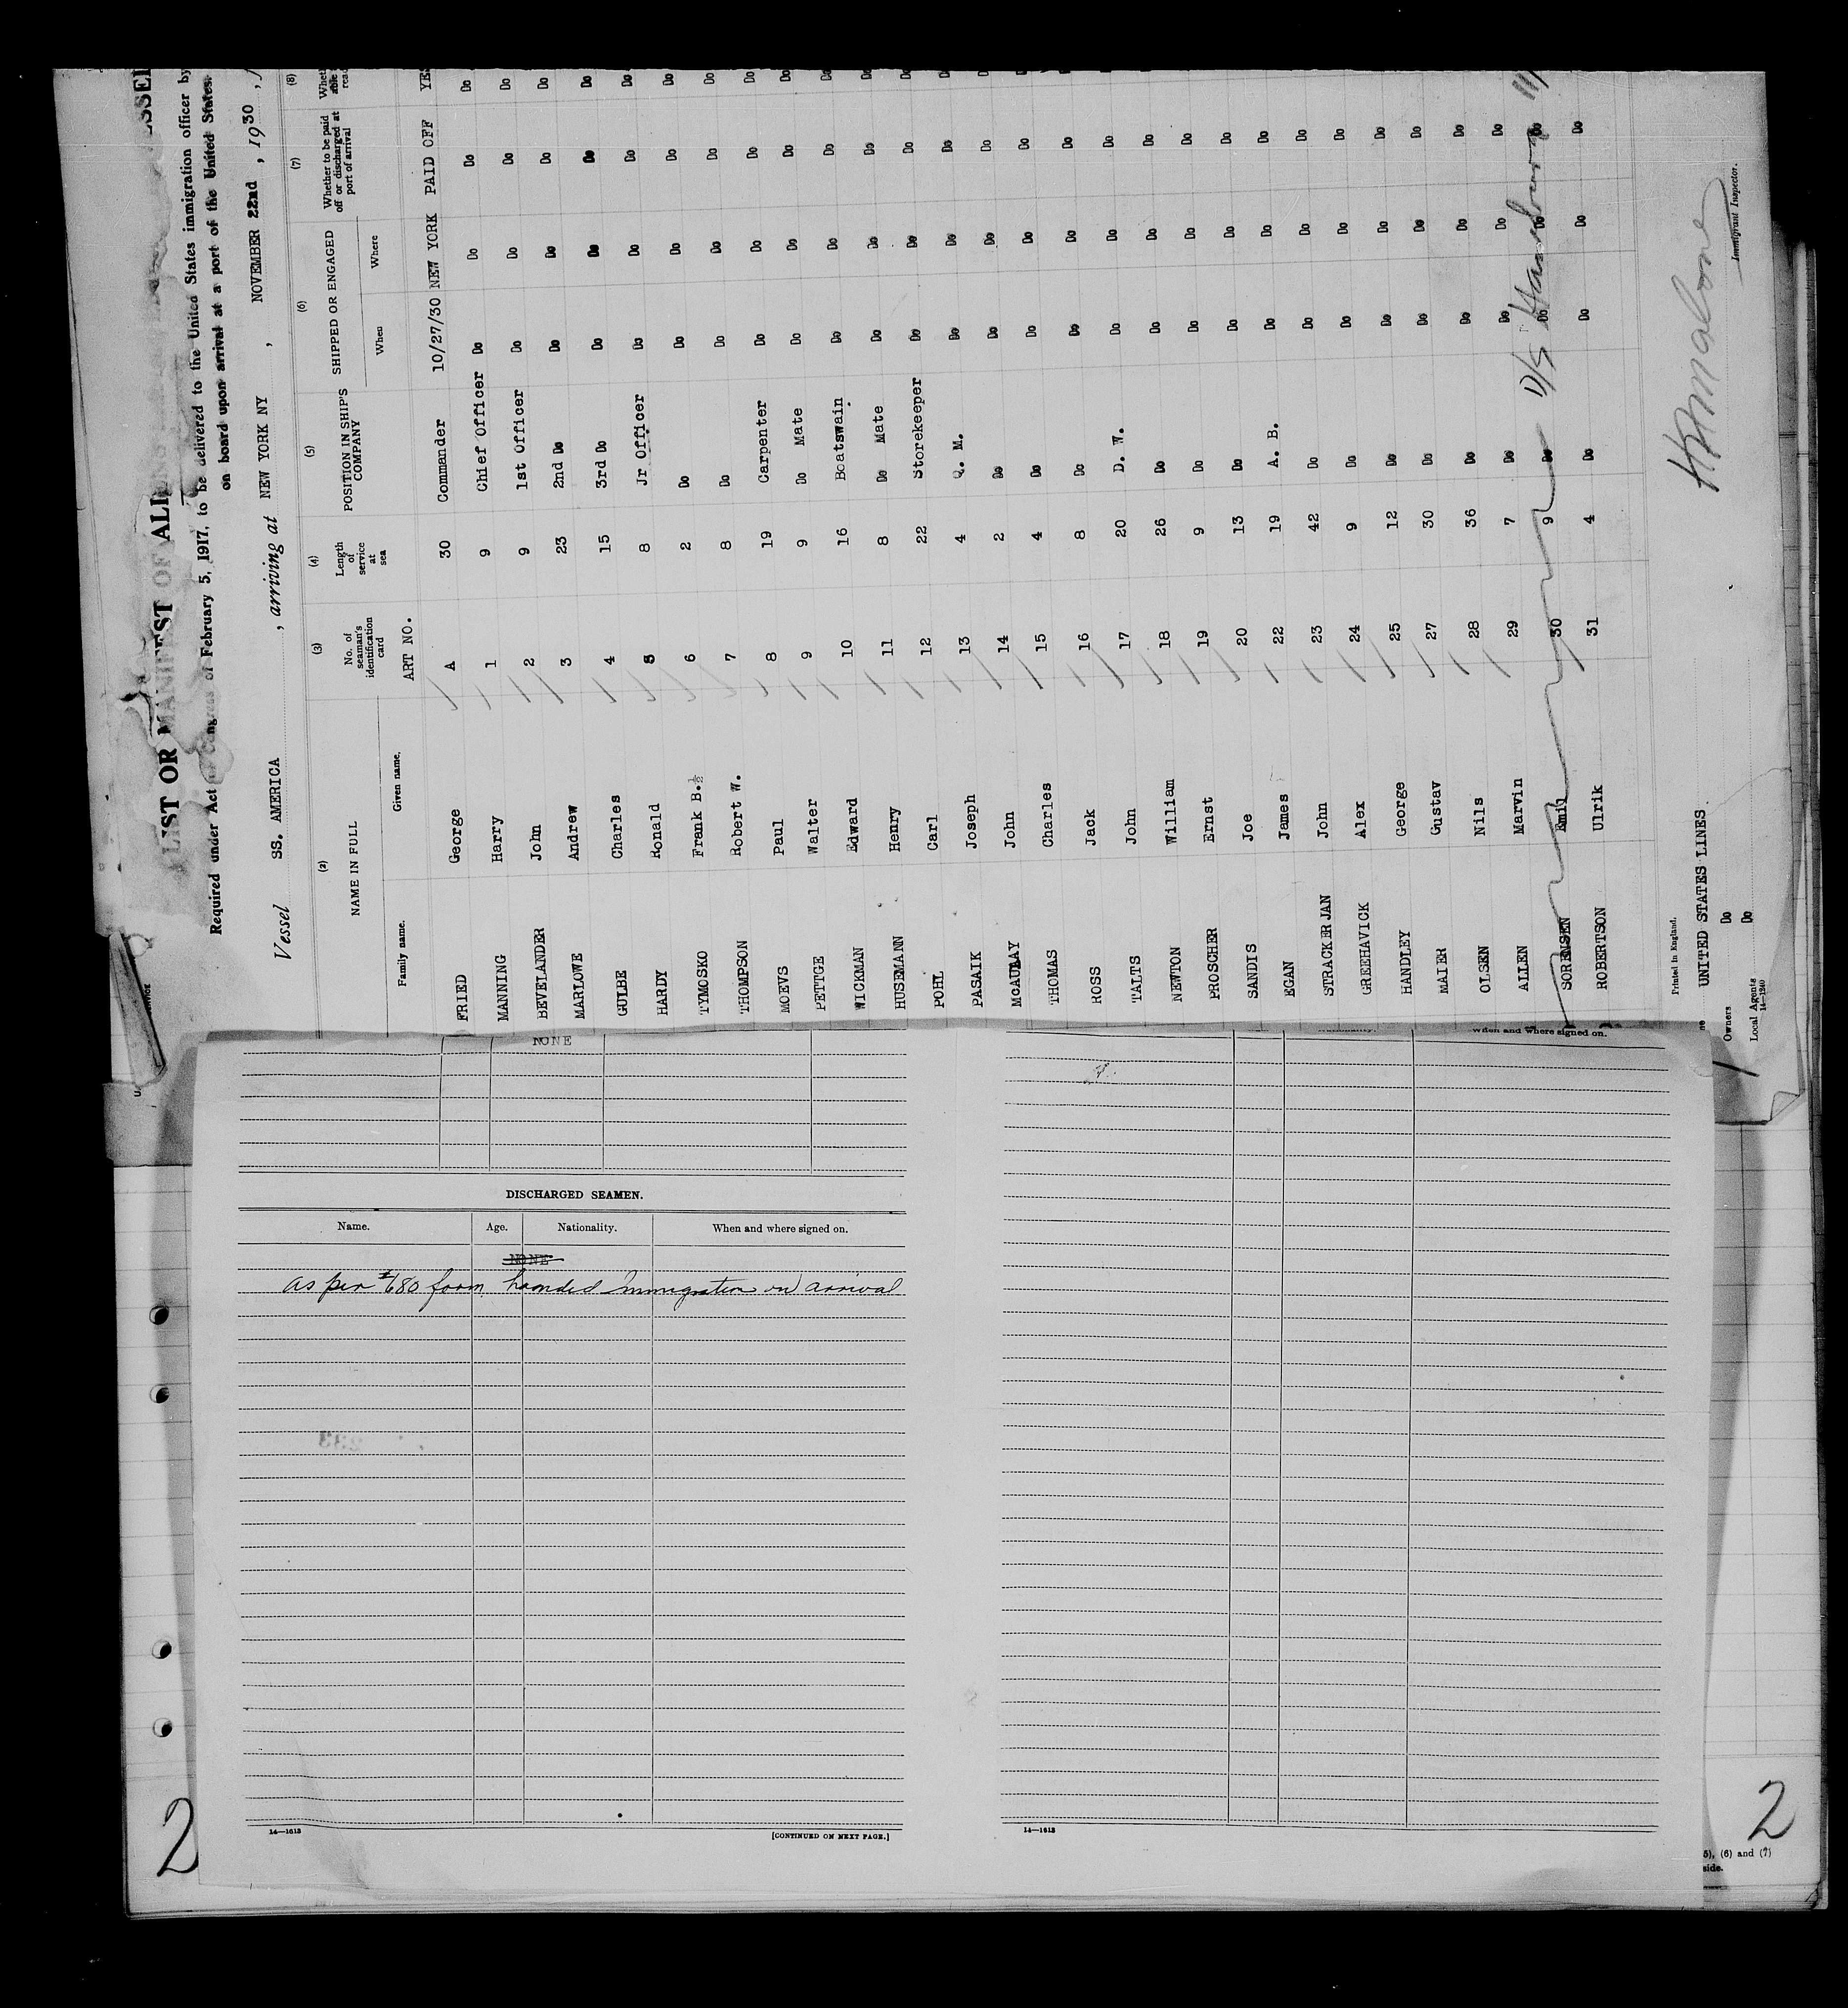 LIST OR MANIFEST OF ALI
Required under Act of Congress of February 5, 1917, to be delivered to the United States immigration officer by
on board upon arrival at a port of the United States.
Vessel SS. AMERICA , arriving at NEW YORK NY , NOVEMBER 22nd , 1930
(2) (3) (4) (5) (6) (7) (8)
NAME IN FULL No. of seaman's identification card Length of service at sea POSITION IN SHIP'S COMPANY SHIPPED OR ENGAGED Whether to be paid off or discharged at port of arrival
Family name. Given name. When Where
ART NO. 10/27/30 NEW YORK PAID OFF YES
FRIED George A 30 Commander
MANNING Harry 1 9 Chief Officer Do Do Do Do
BEVELANDER John 2 9 1st Officer Do Do Do Do
MARLOWE Andrew 3 23 2nd Do Do Do Do Do
GULBE Charles 4 15 3rd Do Do Do Do Do
HARDY Ronald 5 8 Jr Officer Do Do Do Do
TYMOSKO Frank B.½ 6 2 Do Do Do Do Do
THOMPSON Robert W. 7 8 Do Do Do Do Do
MOEVS Paul 8 19 Carpenter Do Do Do Do
PETTGE Walter 9 9 Do Mate Do Do Do Do
WICKMAN Edward 10 16 Boatswain Do Do Do Do
HUSEMANN Henry 11 8 Do Mate Do Do Do Do
POHL Carl 12 22 Storekeeper Do Do Do Do
PASAIK Joseph 13 4 Q. M. Do Do Do Do
McAULAY John 14 2 Do Do Do Do
THOMAS Charles 15 4 Do Do Do Do
ROSS Jack 16 8 Do Do Do Do
TALTS John 17 20 D. W. Do Do Do
NEWTON William 18 26 Do Do Do Do
PROSCHER Ernst 19 9 Do Do Do Do
SANDIS Joe 20 13 Do Do Do Do
EGAN James 22 19 A. B. Do Do Do
STRACKERJAN John 23 42 Do Do Do Do
GREEHAVICK Alex 24 9 Do Do Do Do
HANDLEY George 25 12 Do Do Do Do
MAIER Gustav 27 30 Do Do Do Do
OLSEN Nils 28 36 Do Do Do Do
ALLEN Marvin 29 7 Do Do Do Do
SORENSEN Emil 30 9 Do Do Do Do D/S Hamburg 11/
ROBERTSON Ulrik 31 4 Do Do Do Do
Printed in England.
UNITED STATES LINES
Owners Do
Local Agents Do
14—1240
Immigrant Inspector.
NONE
When and where signed on.
DISCHARGED SEAMEN.
Name. Age. Nationality. When and where signed on.
NONE
as per #680 form handed Immigration on arrival
14—1613
[CONTINUED ON NEXT PAGE.]
14—1613
2
2
(6) and (7)
side.